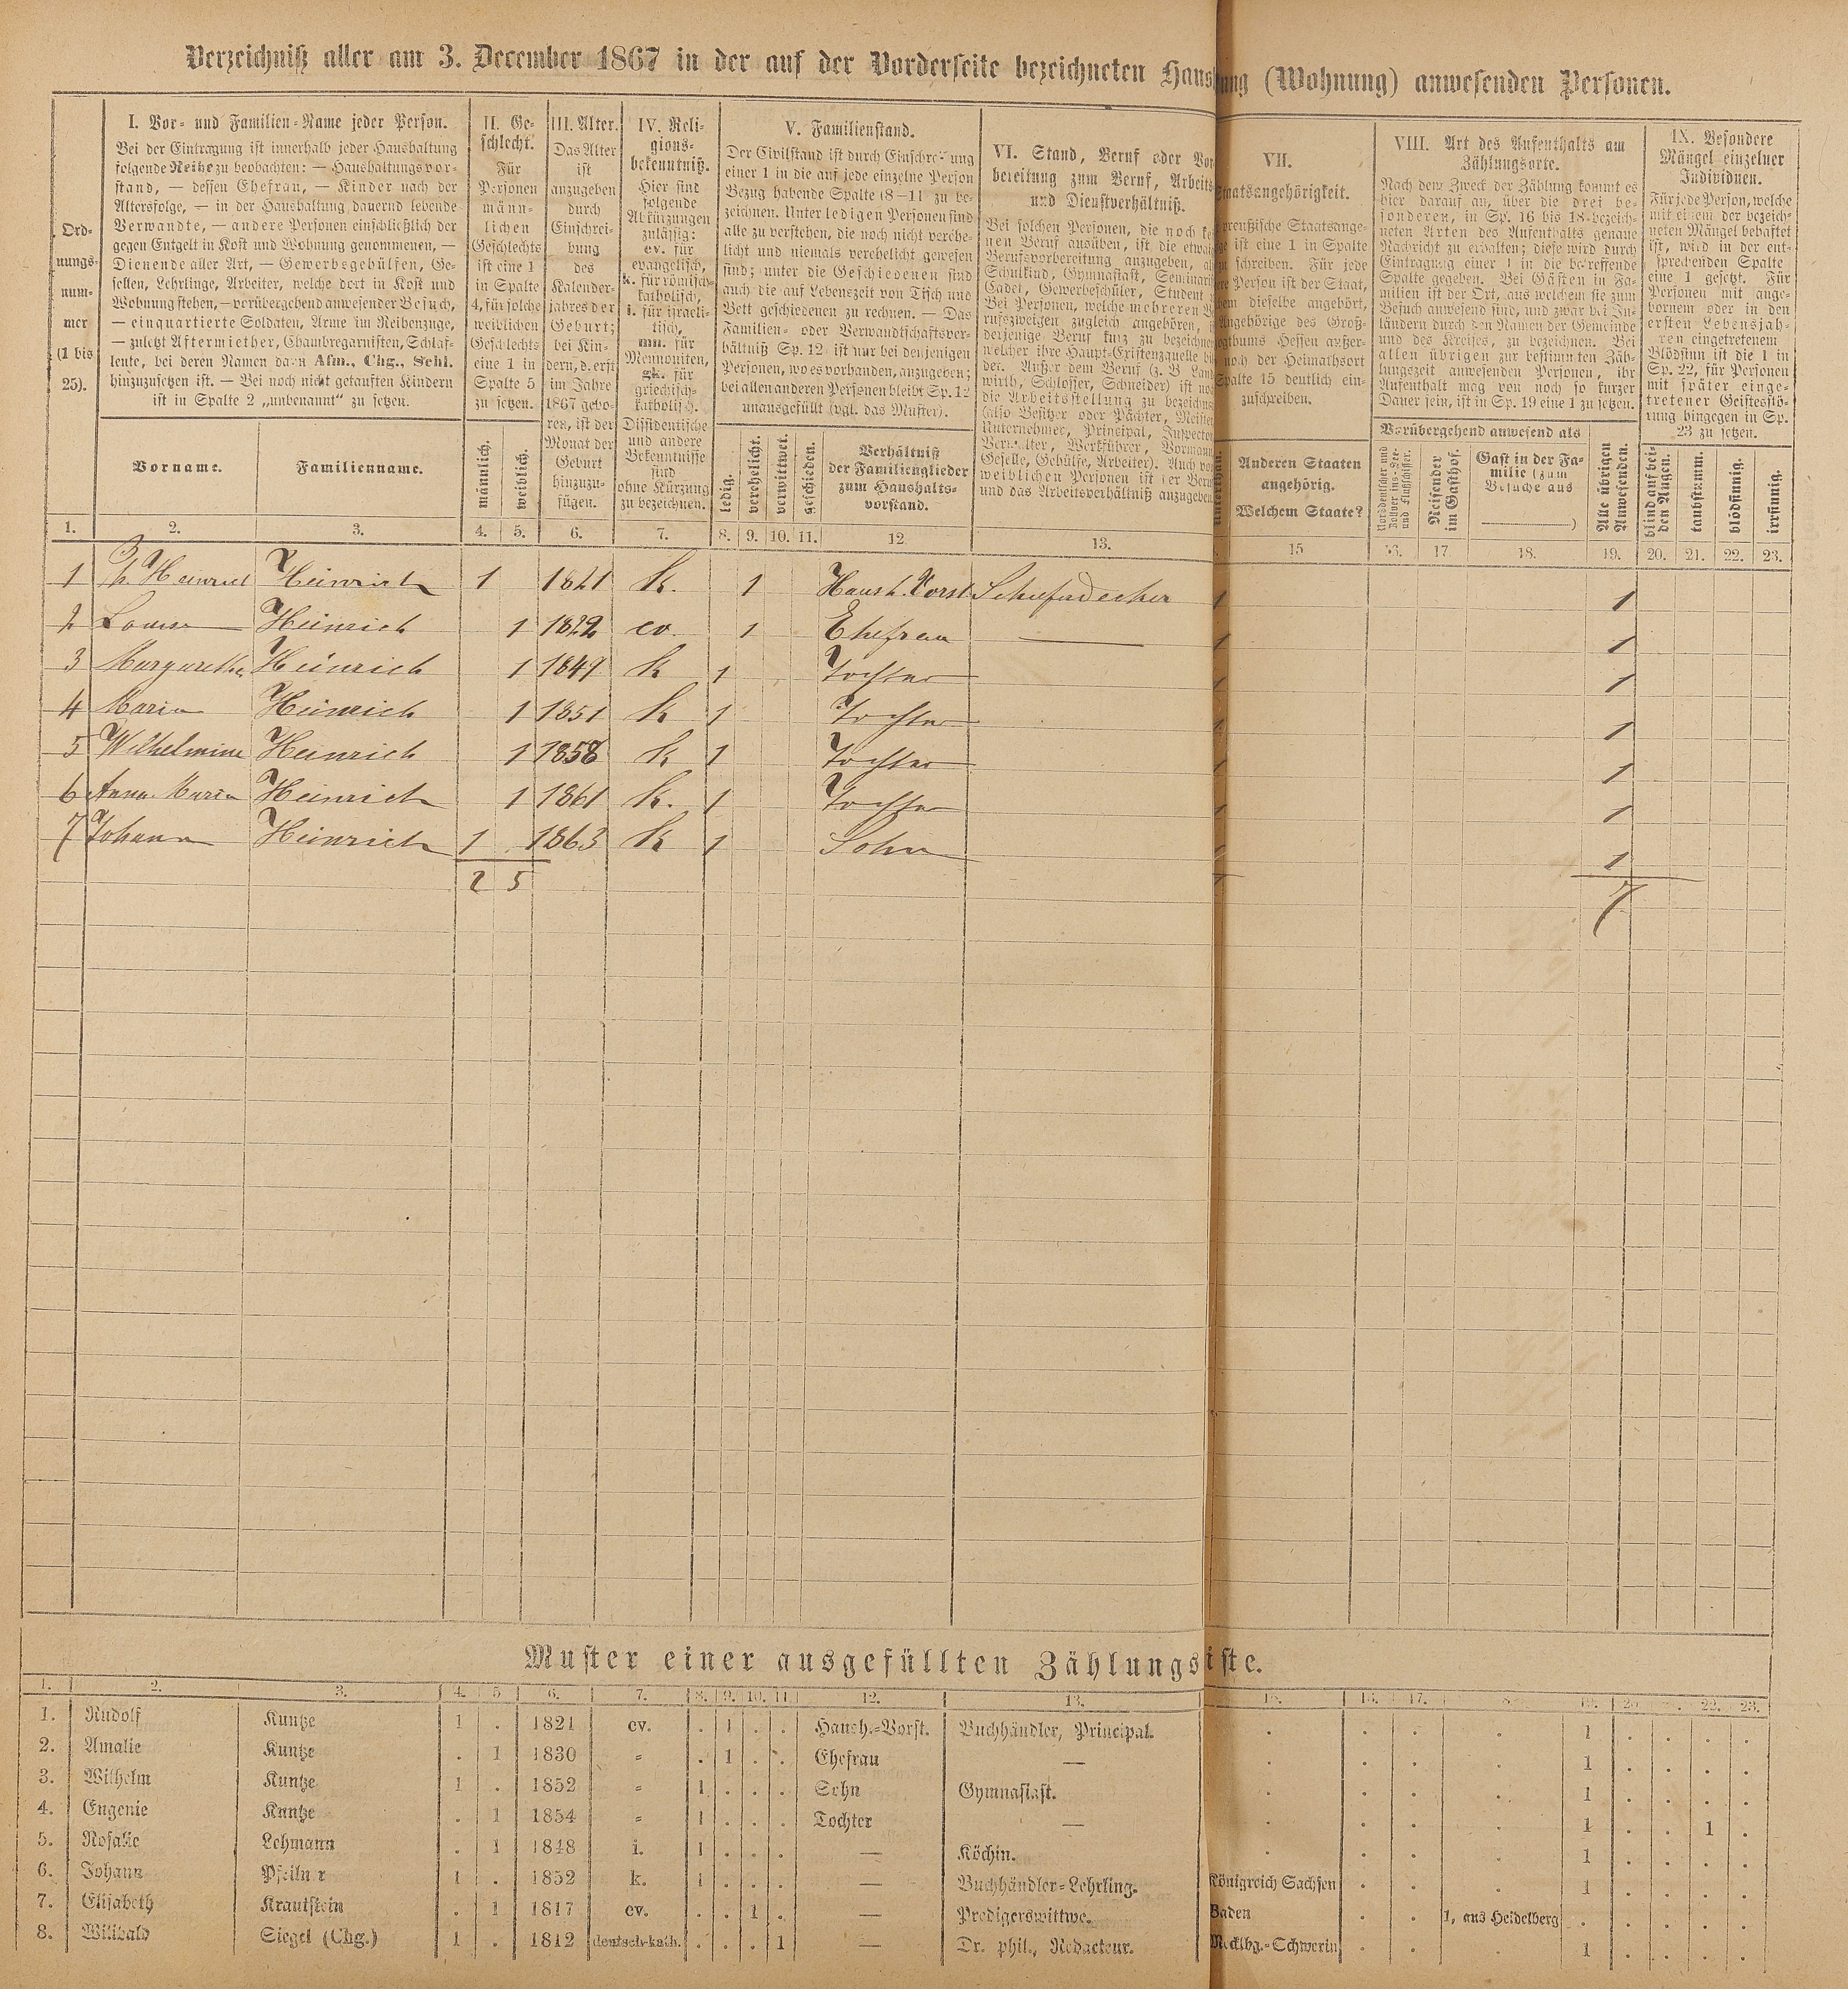 Verzeichniß aller am 3. December 1867 in der auf der Vorderseite bezeichneten Haus tung (Wohnung) anwesenden Personen.
Ord-
nungs-
num-
mer
(1 bis
25).
I. Vor- und Familien-Name jeder Person.
Bei der Eintragung ist innerhalb jeder Haushaltung
folgende Reihe zu beobachten: — Haushaltungsvor-
stand, — dessen Ehefrau, — Kinder nach der
Altersfolge, — in der Haushaltung dauernd lebende
Verwandte, — andere Personen einschließlich der
gegen Entgelt in Kost und Wohnung genommenen, —
Dienende aller Art, — Gewerbsgehülfen, Ge-
sellen, Lehrlinge, Arbeiter, welche dort in Kost und
Wohnung stehen, — vorübergehend anwesender Besuch,
— einquartierte Soldaten, Arme im Reihenzuge,
— zuletzt Aftermiether, Chambregarnisten, Schlaf-
leute, bei deren Namen dann Afm., Chg., Schl.
hinzuzusetzen ist. — Bei noch nicht getauften Kindern
ist in Spalte 2 „unbenannt“ zu setzen.
Vorname.
Familienname.
II. Ge-
schlecht.
Für
Personen
männ-
lichen
Geschlechts
ist eine 1
in Spalte
4, für solche
weiblichen
Geschlechts
eine 1 in
Spalte 5
zu setzen.
männlich.
weiblich.
III. Alter.
Das Alter
ist
anzugeben
durch
Einschrei-
bung
des
Kalender-
jahres der
Geburt;
bei Kin-
dern, d. erst
im Jahre
1867 gebo-
ren, ist der
Monat der
Geburt
hinzuzu-
fügen.
IV. Reli-
gions-
bekenntniß.
Hier sind
folgende
Abkürzungen
zulässig:
ev. für
evangelisch,
k. für römisch-
katholisch,
i. für israeli-
tisch,
mn. für
Mennoniten,
gk. für
griechisch-
katholisch.
Dissidentische
und andere
Bekenntnisse
sind
ohne Kürzung
zu bezeichnen.
V. Familienstand.
Der Civilstand ist durch Einschreibung
einer 1 in die auf jede einzelne Person
Bezug habende Spalte (8—11) zu be-
zeichnen. Unter ledigen Personen sind
alle zu verstehen, die noch nicht verehe-
licht und niemals verehelicht gewesen
sind; unter die Geschiedenen sind
auch die auf Lebenszeit von Tisch und
Bett geschiedenen zu rechnen. — Das
Familien- oder Verwandtschaftsver-
hältniß Sp. 12 ist nur bei denjenigen
Personen, wo es vorhanden, anzugeben;
bei allen anderen Personen bleibt Sp. 12
unausgefüllt (vgl. das Muster).
ledig.
verehelicht.
verwittwet.
geschieden.
Verhältniß
der Familienglieder
zum Haushalts-
vorstand.
VI. Stand, Beruf oder Vor
bereitung zum Beruf, Arbeits
und Dienstverhältniß.
Bei solchen Personen, die noch ke
nen Beruf ausüben, ist die etwai
Berufsvorbereitung anzugeben, al
Schulkind, Gymnasiast, Seminarist
Cadet, Gewerbeschüler, Student
Bei Personen, welche mehreren
rufszweigen zugleich angehören,
derjenige Beruf kurz zu bezeichnen
welcher ihre Haupt-Existenzquelle bil
det. Außer dem Beruf (z. B. Land
wirth, Schlosser, Schneider) ist noch
die Arbeitsstellung zu bezeichnen
(also Besitzer oder Pächter, Meister
Unternehmer, Principal, Inspector
Verwalter, Werkführer, Vormann
Geselle, Gehülfe, Arbeiter). Auch von
weiblichen Personen ist der Beruf
und das Arbeitsverhältniß anzugeben
VII.
Staatsangehörigkeit.
preußische Staatsange-
ge ist eine 1 in Spalte
zu schreiben. Für jede
Person ist der Staat,
dem dieselbe angehört,
Angehörige des Groß-
herzogthums Hessen außer-
noch der Heimathsort
Spalte 15 deutlich ein-
zuschreiben.
Anderen Staaten
angehörig.
Welchem Staate?
VIII. Art des Aufenthalts am
Zählungsorte.
Nach dem Zweck der Zählung kommt es
hier darauf an, über die drei be-
sonderen, in Sp. 16 bis 18 bezeich-
neten Arten des Aufenthalts genaue
Nachricht zu erhalten; diese wird durch
Eintragung einer 1 in die betreffende
Spalte gegeben. Bei Gästen in Fa-
milien ist der Ort, aus welchem sie zum
Besuch anwesend sind, und zwar bei In-
ländern durch den Namen der Gemeinde
und des Kreises, zu bezeichnen. Bei
allen übrigen zur bestimmten Zäh-
lungszeit anwesenden Personen, ihr
Aufenthalt mag von noch so kurzer
Dauer sein, ist in Sp. 19 eine 1 zu setzen.
Vorübergehend anwesend als
Norddeutscher und
Zollvereins-See-
und Flußschiffer.
Reisender
im Gasthof.
Gast in der Fa-
milie (zum
Besuche aus
)
Alle übrigen
Anwesenden.
IX. Besondere
Mängel einzelner
Individuen.
Für jede Person, welche
mit einem der bezeich-
neten Mängel behaftet
ist, wird in der ent-
sprechenden Spalte
eine 1 gesetzt. Für
Personen mit ange-
bornem oder in den
ersten Lebensjah-
ren eingetretenem
Blödsinn ist die 1 in
Sp. 22, für Personen
mit später einge-
tretener Geistesstö-
rung hingegen in Sp.
23 zu setzen.
blind auf bei-
den Augen.
taubstumm.
blödsinnig.
irrsinnig.
1. 2. 3. 4. 5. 6. 7. 8. 9. 10. 11. 12 13. 15 16. 17 18. 19. 20. 21. 22. 23.
1 Heinrich Heinrich 1 1821 K. 1 Haush. Vorst. 1 1
2 Louise Heinrich 1 1822 ev. 1 Ehefrau — 1 1
3 Margaretha Heinrich 1 1849 K 1 Tochter 1 1
4 Maria Heinrich 1 1851 K 1 Tochter 1 1
5 Wilhelmine Heinrich 1 1858 K 1 Tochter 1 1
6 Anna Maria Heinrich 1 1861 K. 1 Tochter 1 1
7 Johann Heinrich 1 1863 K 1 Sohn 1 1
2 5 7
Muster einer ausgefüllten Zählungsliste.
1. 2. 3. 4. 5 6. 7. 8. 9. 10. 11 12. 13. 15. 16. 17. 8. 19. 20 22. 23.
1. Rudolf Kuntze 1 . 1821 ev. . 1 . . Haush.-Vorst. Buchhändler, Principal. . . . . 1 . . . .
2. Amalie Kuntze . 1 1830 = . 1 . . Ehefrau — . . . . 1 . . . .
3. Wilhelm Kuntze 1 . 1852 = 1 . . . Sohn Gymnasiast. . . . . 1 . . . .
4. Eugenie Kuntze . 1 1854 = 1 . . . Tochter — . . . . 1 . . 1 .
5. Rosalie Lehmann . 1 1848 i. 1 . . . — Köchin. . . . . 1 . . . .
6. Johann Pfeilner 1 . 1852 k. 1 . . . — Buchhändler-Lehrling. Königreich Sachsen . . . 1 . . . .
7. Elisabeth Krautstein . 1 1817 ev. . . 1 . — Predigerswittwe. Baden . . 1, aus Heidelberg . . . . .
8. Willibald Siegel (Chg.) 1 . 1812 deutsch-kath. . . . 1 — Dr. phil., Redacteur. Mecklbg.-Schwerin . . . 1 . . . .